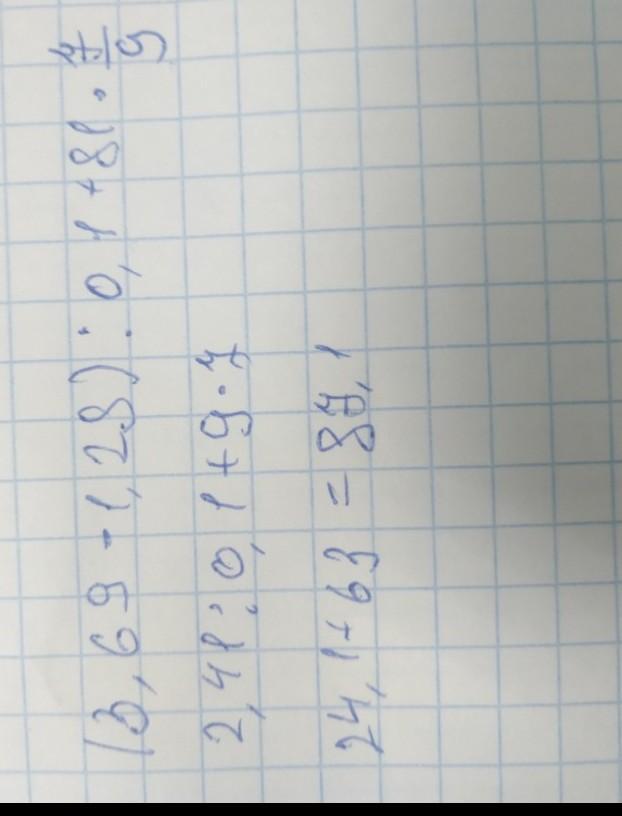 (3,69-1,28):0,1+81·7/9
2,41:0,1+9·7
24,1+63=87,1